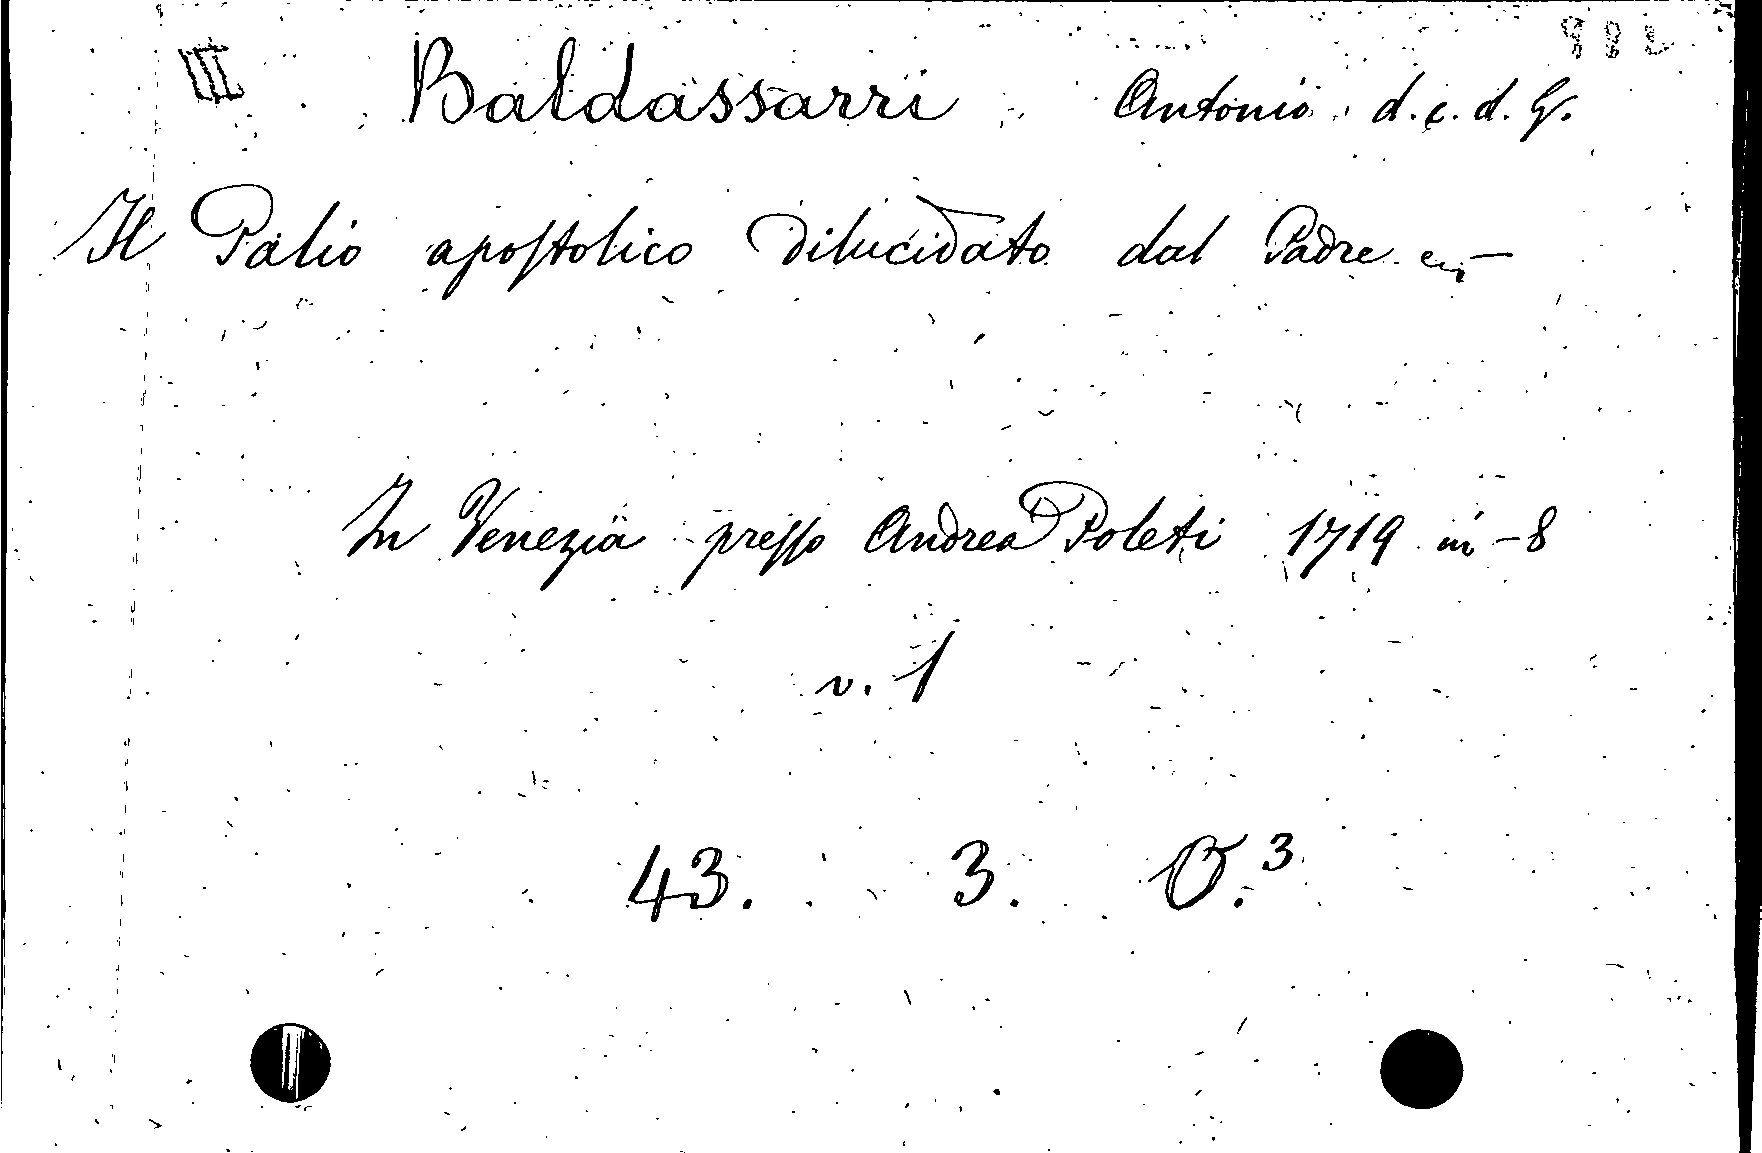 III Baldassarri Antonio d.c.d.G.
Il Palio apostolico dilucidato dal Padre
In Venezia presso Andrea Poleti 1719 in-8
v. 1
43. 3. O.3